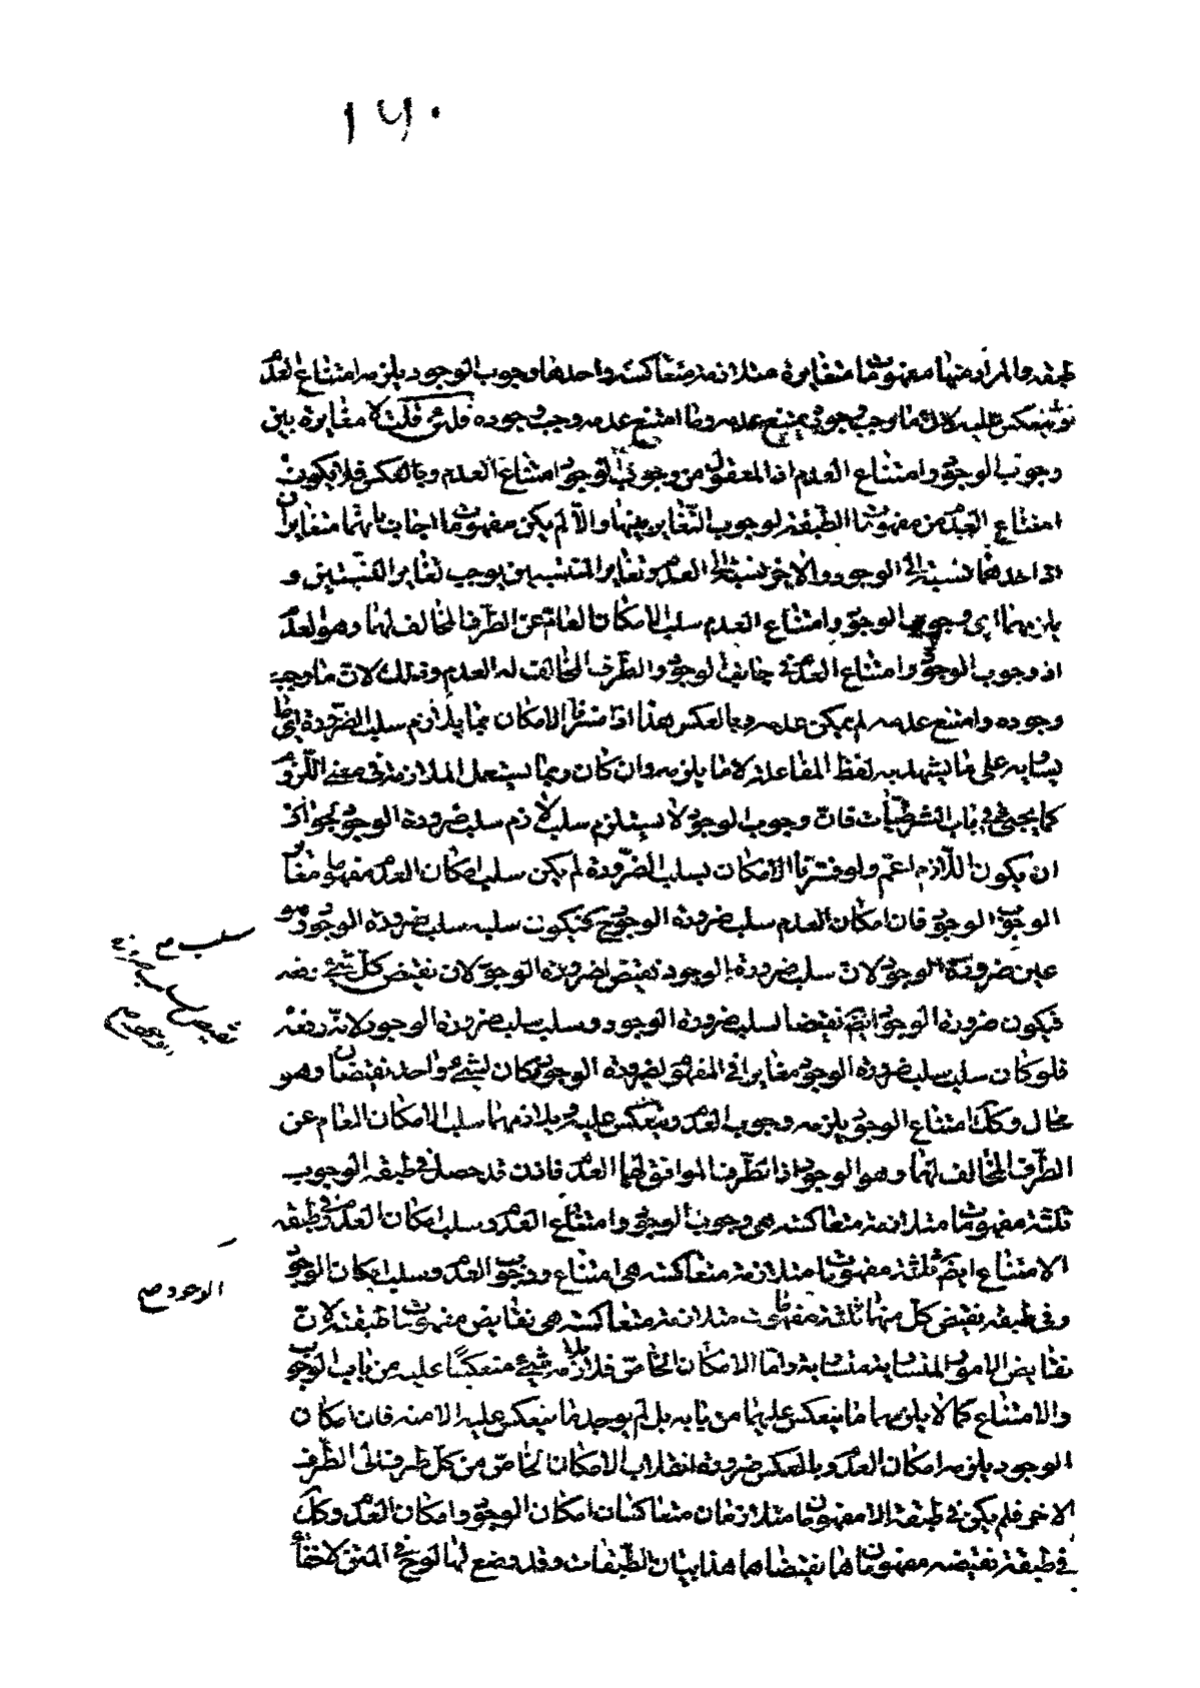 ١٦٠
طبقة والمراد منها مفهومات متغايرة متلازمة متعاكسة واحدها وجوب الوجود يلزمه امتناع العدم
وينعكس عليه لان ما وجب وجوده يمتنع عدمه وما امتنع عدمه وجب وجوده فلئن قلت لا مغايرة بين
وجوب الوجود وامتناع العدم اذ المعقول من وجوب الوجود امتناع العدم وبالعكس فلا يكون
امتناع العدم من مفهومات الطبقة لوجوب التغاير بينها والا لم يكن مفهومات اجاب بانهما متغايران
اذ احدهما نسبة الى الوجود والاخر نسبة الى العدم وتغاير المنتسبين يوجب تغاير النسبتين و
يلزمهما اى وجوب الوجود وامتناع العدم سلب الامكان العام عن الطرف المخالف لهما وهو العدم
اذ وجوب الوجود وامتناع العدم في جانب الوجود والطرف المخالف له العدم وذلك لان ما وجب
وجوده وامتنع عدمه لم يمكن عدمه وبالعكس هذا اذا فسرنا الامكان بما يلازم سلب الضرورة اى
يساويه على ما يشهد به لفظ المفاعلة لا ما يلزمه وان كان ربما يستعمل الملازمة في معنى اللزوم
كما يجئ في باب الشرطيات فان وجوب الوجود لا يستلزم سلب لازم سلب ضرورة الوجود لجواز
ان يكون اللازم اعم ولو فسرنا الامكان بسلب الضرورة لم يكن سلب امكان العدم مفهوما مغايرا
لوجوب الوجود فان امكان العدم سلب ضرورة الوجود فيكون سلبه سلب ضرورة الوجود وهو
عين ضرورة الوجود لان سلب ضرورة الوجود نقيض لضرورة الوجود لان نقيض كل شئ رفعه
فيكون ضرورة الوجود ايضا نقيضا لسلب ضرورة الوجود وسلب سلب ضرورة الوجود لانه رفعه
فلو كان سلب سلب ضرورة الوجود مغايرا في المفهوم لضرورة الوجود لكان لشئ واحد نقيضان وهو
محال وكذا امتناع الوجود يلزمه وجوب العدم وينعكس عليه ويلازمهما سلب الامكان العام عن
الطرف المخالف لهما وهو الوجود اذ الطرف الموافق لهما العدم فاذن قد حصل في طبقة الوجوب
ثلثة مفهومات متلازمة متعاكسة هى وجوب الوجود وامتناع العدم وسلب امكان العدم وفي طبقة
الامتناع ايضا ثلثة مفهومات متلازمة متعاكسة هى امتناع ووجوب العدم وسلب امكان الوجود
وفي طبقة نقيض كل منهما ثلثة مفهومات متلازمة متعاكسة هى نقايض مفهومات طبقته لان
نقايض الامور المتساوية متساوية واما الامكان الخاص فلا يلزمه شئ منعكسا عليه من باب الوجوب
والامتناع كما لا يلزمهما ما ينعكس عليهما من بابه بل لم يوجد ما ينعكس عليه الا منه فان امكان
الوجود يلزمه امكان العدم وبالعكس ضرورة انقلاب الامكان الخاص من كل طرف الى الطرف
الاخر فلم يكن في طبقته الا مفهومان متلازمان متعاكسان امكان الوجود وامكان العدم وكذا
في طبقة نقيضه مفهومان هما نقيضاهما هذا بيان الطبقات وقد وضع لها لوح في المتن لاخفاء
سلب صح
الوجود صح